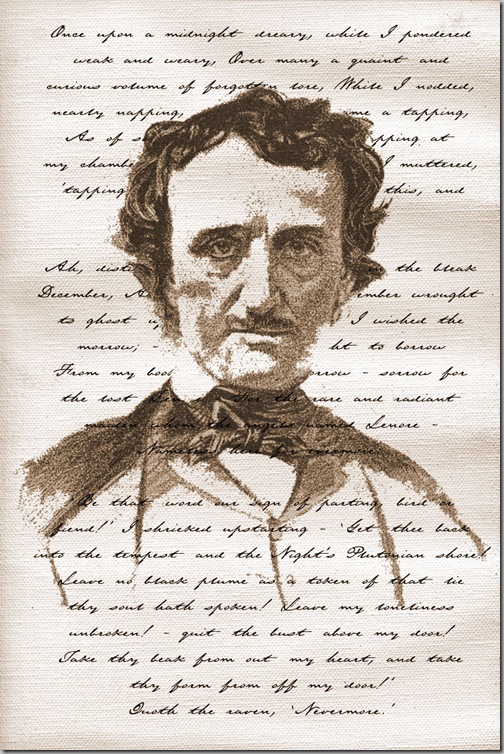 Once upon a midnight dreary, while I pondered
weak and weary, Over many a quaint and
curious volume of forgotten lore, While I nodded,
nearly napping, me a tapping,
As of s pping at
my chambe I muttered,
'tapping this, and
Ah, disti the bleak
December, A ember wrought
to ghost u I wished the
morrow; - ht to borrow
From my boo rrow - sorrow for
the lost Lenore - For the rare and radiant
maiden whom the angels named Lenore -
Nameless here for evermore.
'Be that word our sign of parting, bird or
fiend!' I shrieked upstarting - 'Get thee back
into the tempest and the Night's Plutonian shore!
Leave no black plume as a token of that lie
thy soul hath spoken! Leave my loneliness
unbroken! - quit the bust above my door!
Take thy beak from out my heart, and take
thy form from off my door!'
Quoth the raven, 'Nevermore.'